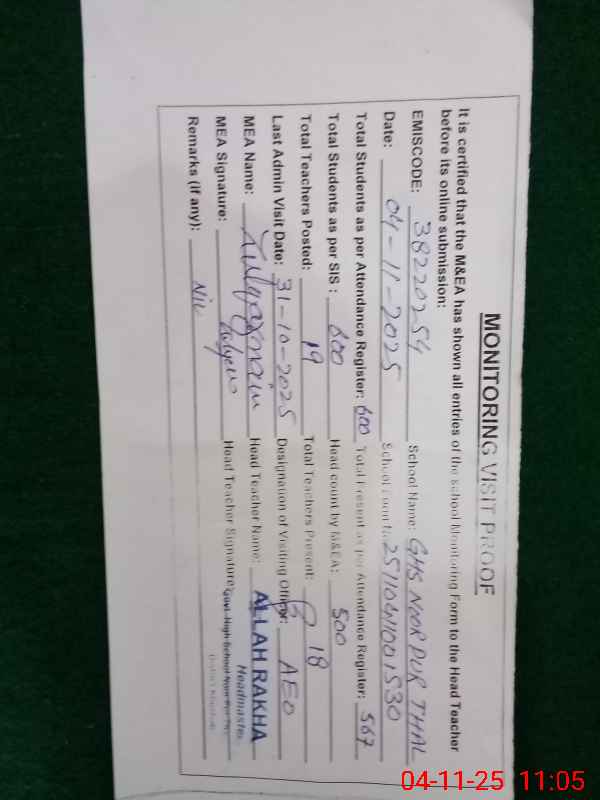 MONITORING VISIT PROOF
It is certified that the M&EA has shown all entries of the School Monitoring Form to the Head Teacher
before its online submission:
EMISCODE: 38220254 School Name: GHS NOOR PUR THAL
Date: 04-11-2025 School Form No. 2511041001530
Total Students as per Attendance Register: 600 Total Present as per Attendance Register: 567
Total Students as per SIS: 600 Head count by M&EA: 500
Total Teachers Posted: 19 Total Teachers Present: 18
Last Admin Visit Date: 31-10-2025 Designation of Visiting Officer: AEO
MEA Name: Head Teacher Name: ALLAH RAKHA
Headmaster
MEA Signature: Head Teacher Signature:
Remarks (if any): Nil
04-11-25 11:05